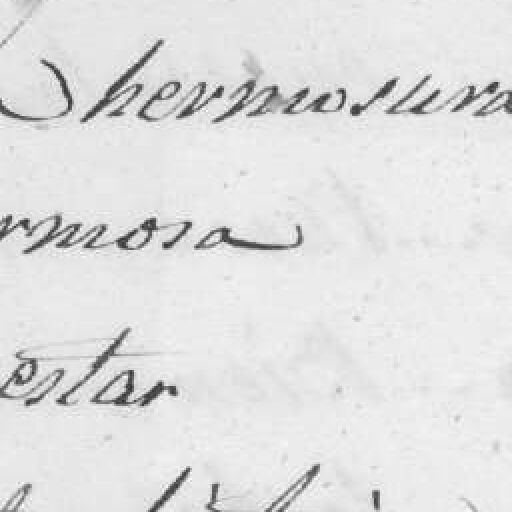 hermosura
rmosa
estar